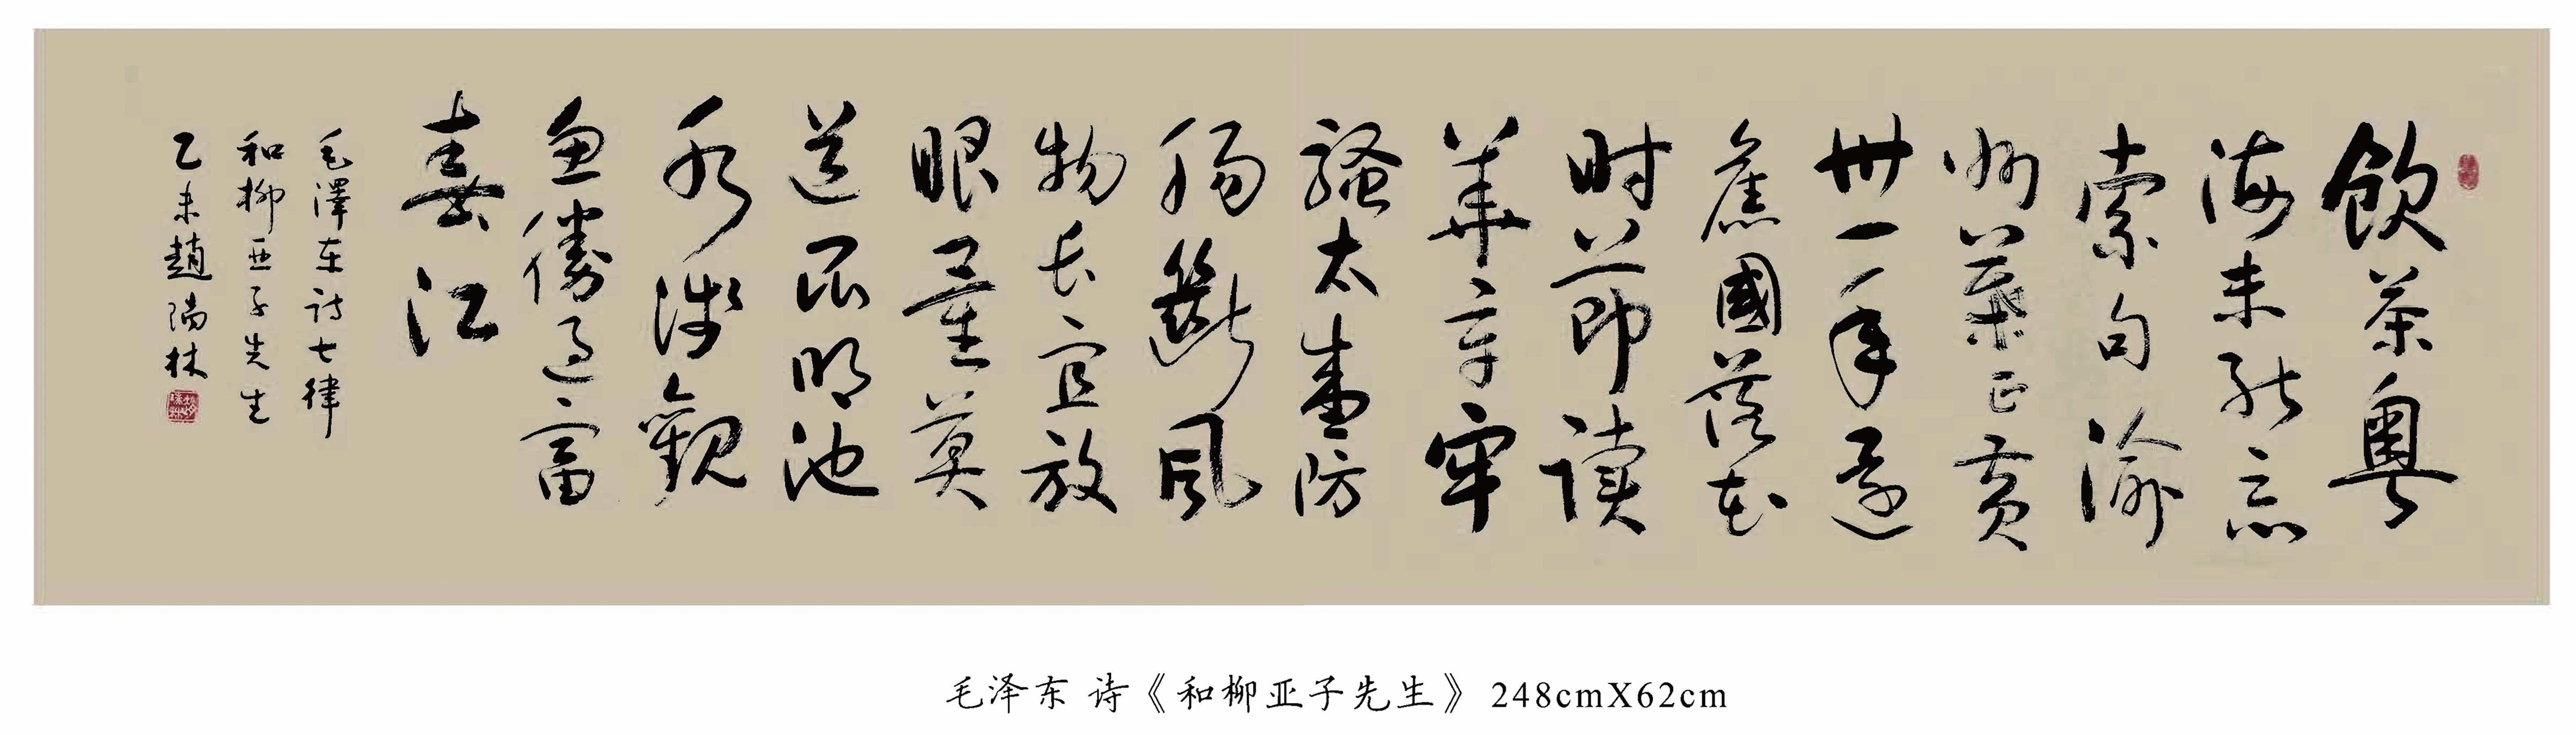 飲茶粵
海未能忘
索句渝
州葉正黄
卅一年還
舊國落花
时節读
華章牢
騷太盛防
腸斷風
物长宜放
眼量莫
道昆明池
水淺觀
魚勝過富
春江
毛澤东诗七律
和柳亚子先生
乙未趙林
毛泽东 诗《和柳亚子先生》248cmX62cm